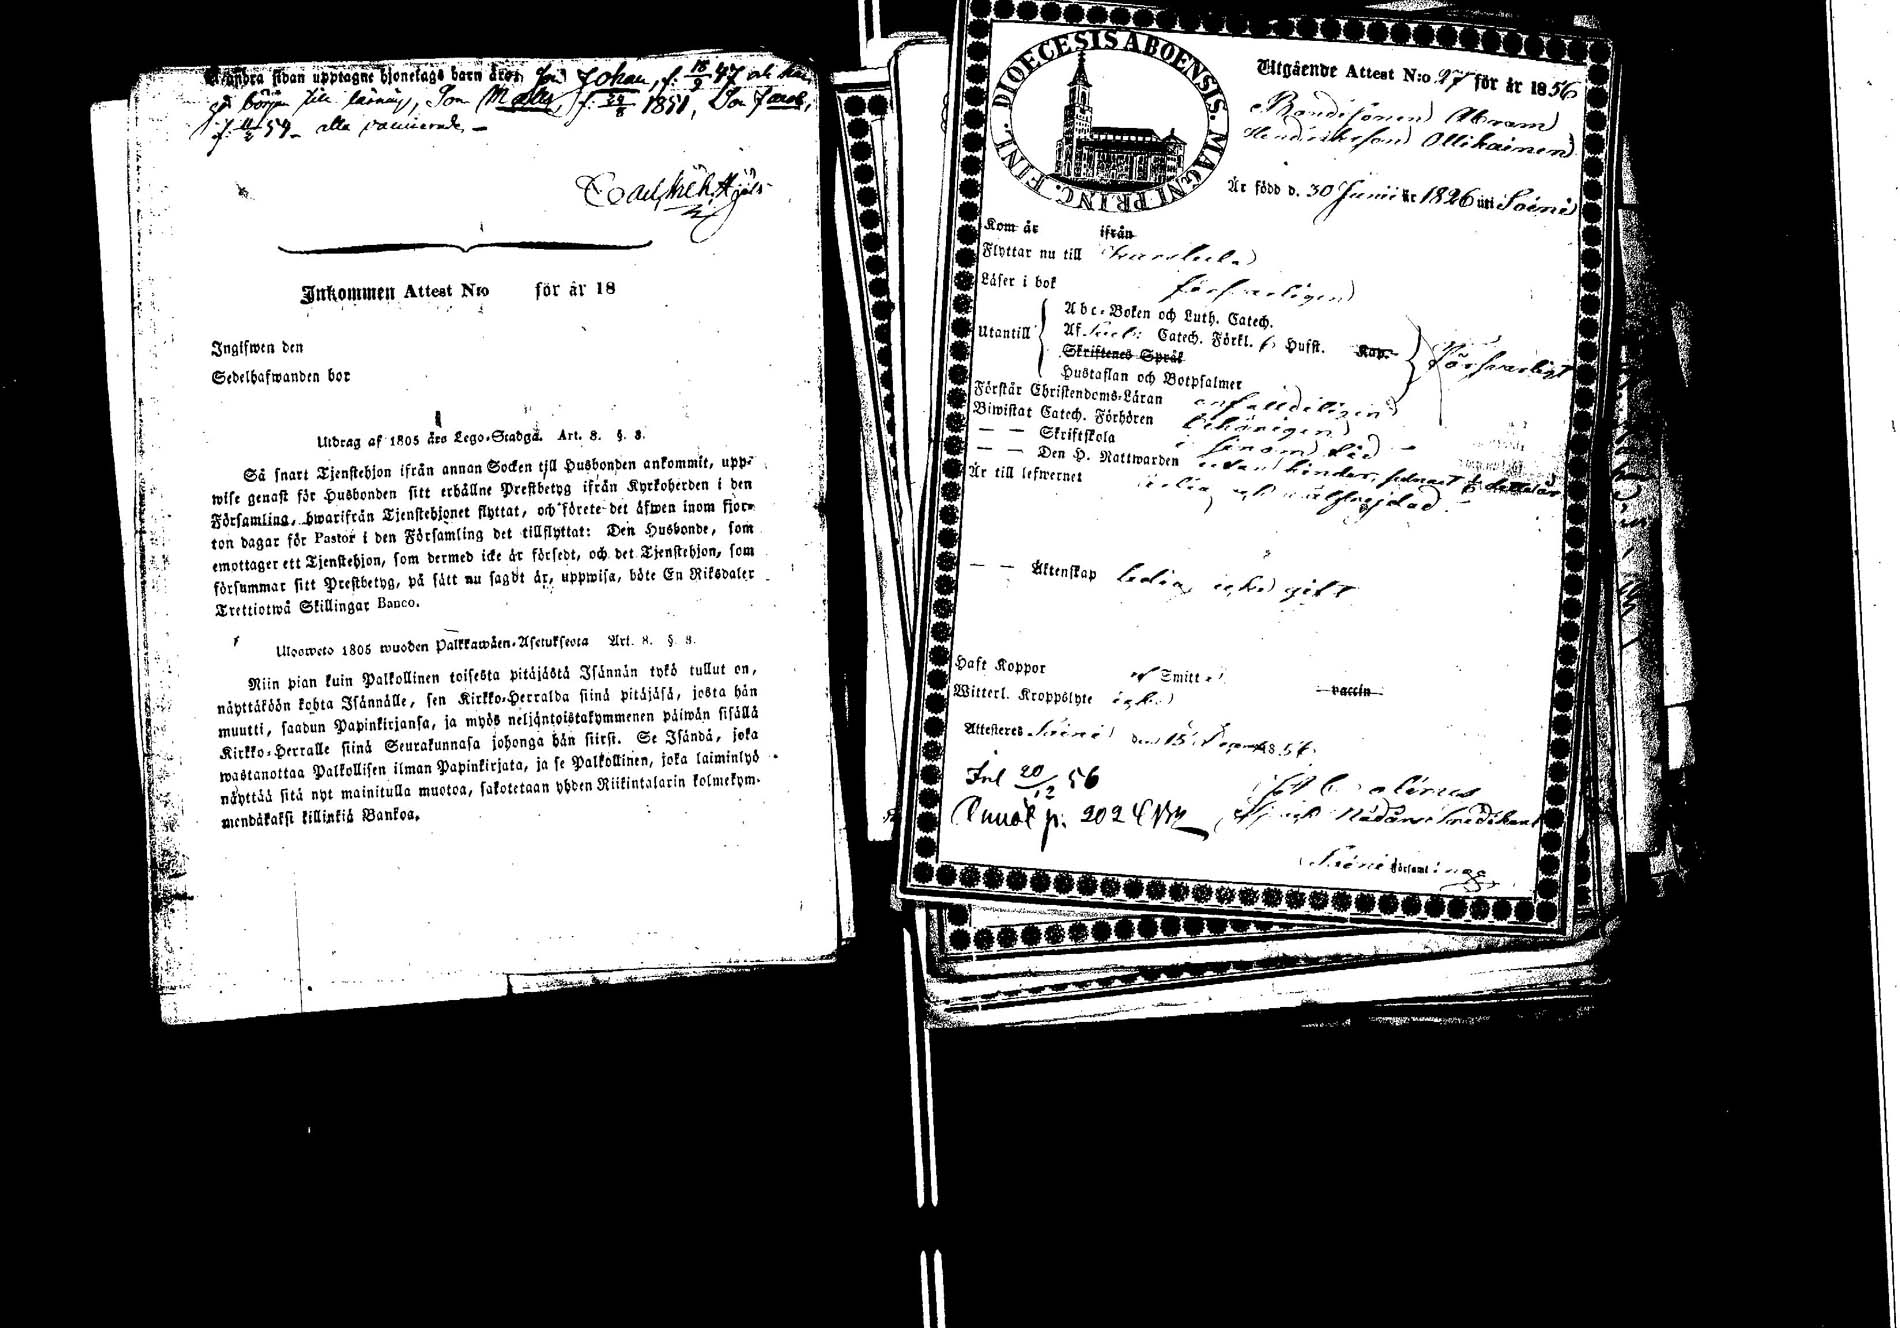 Å andra sidan upptagne hjonelags barn äro: Son Johan, f. 18/9 47 och har
börjat till läsning, Son Matts f. 1851, Son Jacob,
f. 54 – alla vaccinerade –
Inkommen Attest N:o för år 18
Ingifwen den
Sedelhafwanden bor
Utdrag af 1805 års Lego-Stadga. Art. 8. §. 8.
Så snart Tjenstehjon ifrån annan Socken till Husbonden ankommit, upp-
wise genast för Husbonden sitt erhållne Prestbetyg ifrån Kyrkoherden i den
Församling, hwarifrån Tjenstehjonet flyttat, och förete det äfwen inom fjor-
ton dagar för Pastor i den Församling det tillflyttat: Den Husbonde, som
emottager ett Tjenstehjon, som dermed icke är försedt, och det Tjenstehjon, som
försummar sitt Prestbetyg, på sätt nu sagdt är, uppwisa, böte En Riksdaler
Trettiotwå Skillingar Banco.
Ulosweto 1805 wuoden Palkkawäen-Asetuksesta Art. 8. §. 8.
Niin pian kuin Palkollinen toisesta pitäjästä Isännän tykö tullut on,
näyttäköön kohta Isännälle, sen Kirkko-Herralda siinä pitäjäsä, josta hän
muutti, saadun Papinkirjansa, ja myös neljäntoistakymmenen päiwän sisällä
Kirkko-Herralle siinä Seurakunnasa johonga hän siirsi. Se Isändä, joka
wastanottaa Palkollisen ilman Papinkirjata, ja se Palkollinen, joka laiminlyö
näyttää sitä nyt mainitulla muotoa, sakotetaan yhden Riikintalarin kolmekym-
mendäkaksi killinkiä Bankoa.
DIOECESIS ABOENSIS. MAGNI PRINC. FINL.
Utgående Attest N:o 27 för år 1856
Bondesonen Abram
Hendriksson Ollikainen
Är född d. 30 Junii år 1826 uti Soini
Kom år ifrån
Flyttar nu till Karstula
Läser i bok försvarligen
Utantill
Abc-Boken och Luth. Catech.
Af Sveb: Catech. Förkl. Husft. Kap.
Skriftenes Språk
Hustaflan och Botpsalmer
Försvarligt
Förstår Christendoms-Läran enfaldeligen
Biwistat Catech. Förhören behörigen
— — Skriftskola i sinom tid
— — Den H. Nattwarden utan hinder, sednast
Är till lefwernet ärlig och välfrejdad
— — Äktenskap ledig icke gift
Haft Koppor af Smitta vaccin
Witterl. Kroppslyte icke
Attesteras Soini den 15 Decemb 1856
Inl 20/12 56
p. 202
Nådårs Predikant
Soini Församlings